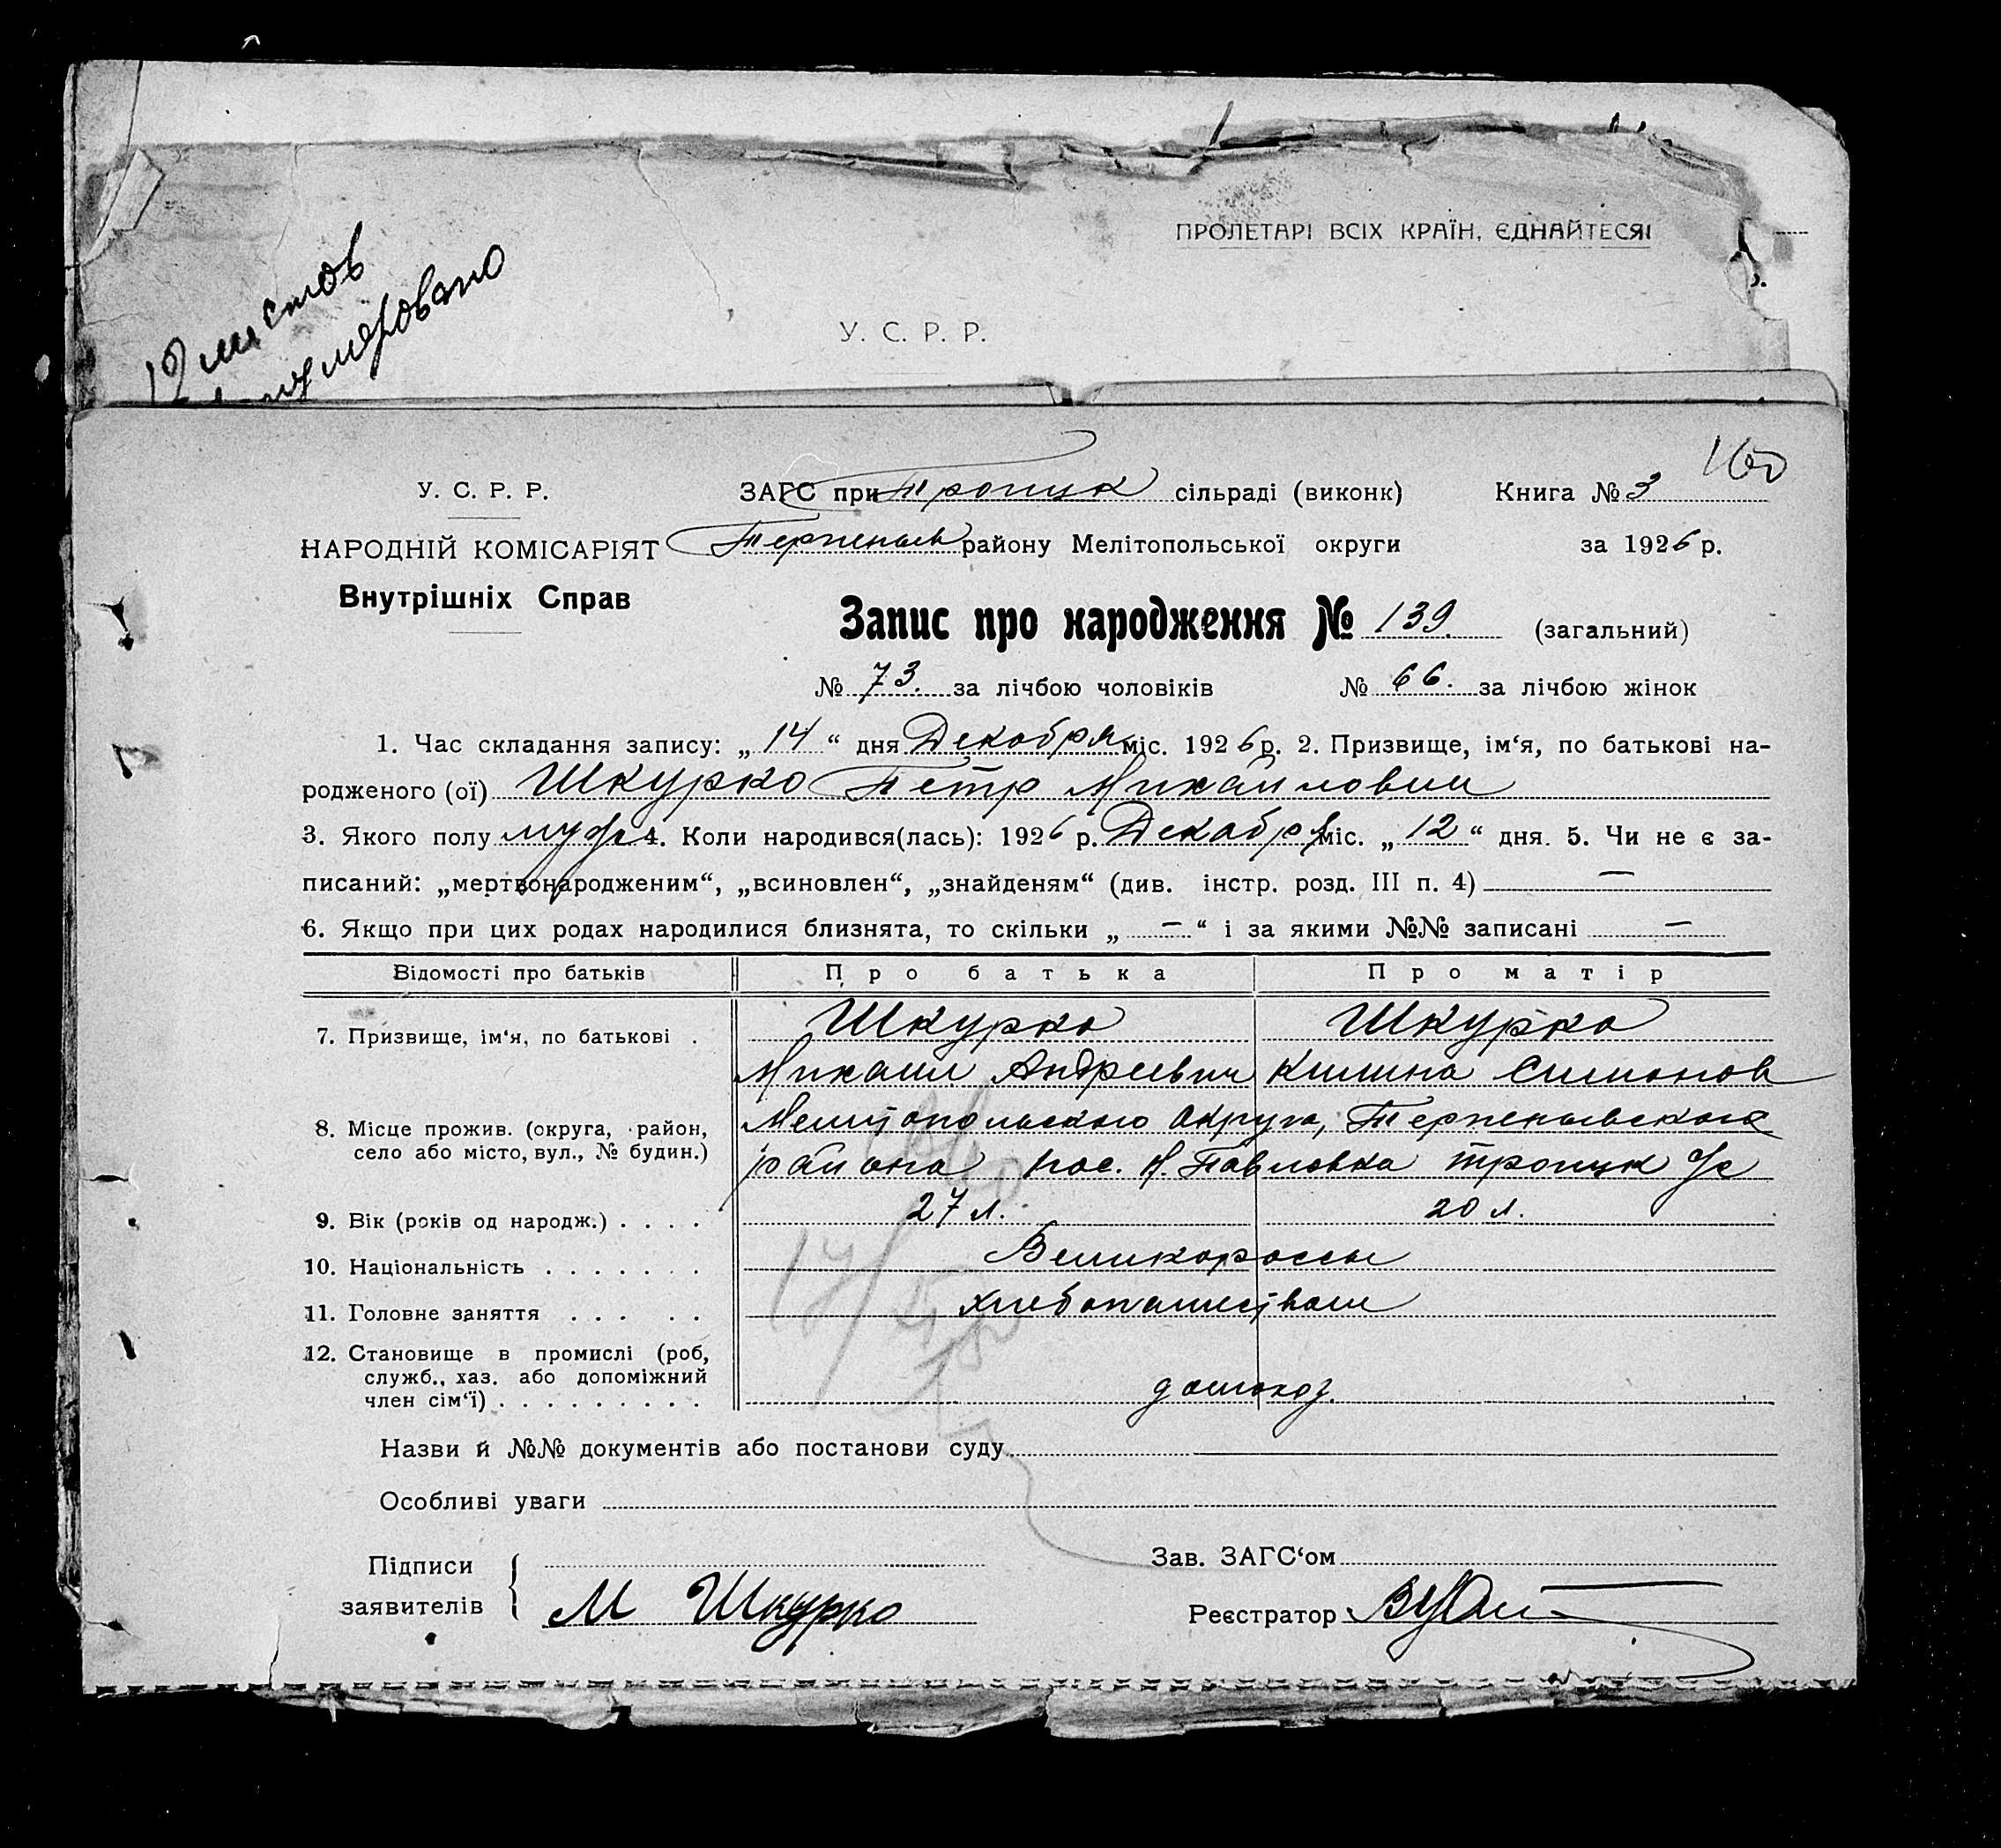 ПРОЛЕТАРІ ВСІХ КРАЇН, ЄДНАЙТЕСЯ!
У. С. Р. Р.
листов
160
У. С. Р. Р. ЗАГС при Тропцк сільраді (виконк) Книга № 3
НАРОДНІЙ КОМІСАРІЯТ Терпеньев району Мелітопольської округи за 1926 р.
Внутрішніх Справ
Запис про народження № 139. (загальний)
№ 73. за лічбою чоловіків № 66. за лічбою жінок
1. Час складання запису: „ 14 “ дня Декабря міс. 1926 р. 2. Призвище, ім‘я, по батькові на-
родженого (ої) Шкурко Петр Михайлович
3. Якого полу муж 4. Коли народився(лась): 1926 р. Декабря міс. „ 12 “ дня. 5. Чи не є за-
писаний: „мертвонародженим“, „всиновлен“, „знайденям“ (див. інстр. розд. III п. 4) —
6. Якщо при цих родах народилися близнята, то скільки „ — “ і за якими №№ записані —
Відомості про батьків Про батька Про матір
7. Призвище, ім‘я, по батькові . Шкурко Шкурко
Михаил Андреевич Килина Симонов
8. Місце прожив. (округа, район, Мелитопольского округа, Терпеньевского
село або місто, вул., № будин.) района пос. Н. Павловка тропцк
9. Вік (років од народж.) . . . . 27 л. 20 л.
10. Національність . . . . . . . Великороссы
11. Головне заняття . . . . . хлебопашеством
12. Становище в промислі (роб,
служб., хаз. або допоміжний
член сім‘ї) . . . . . . . . . домохоз.
Назви й №№ документів або постанови суду
Особливі уваги
Підписи Зав. ЗАГС‘ом
заявителів М Шкурко Реєстратор